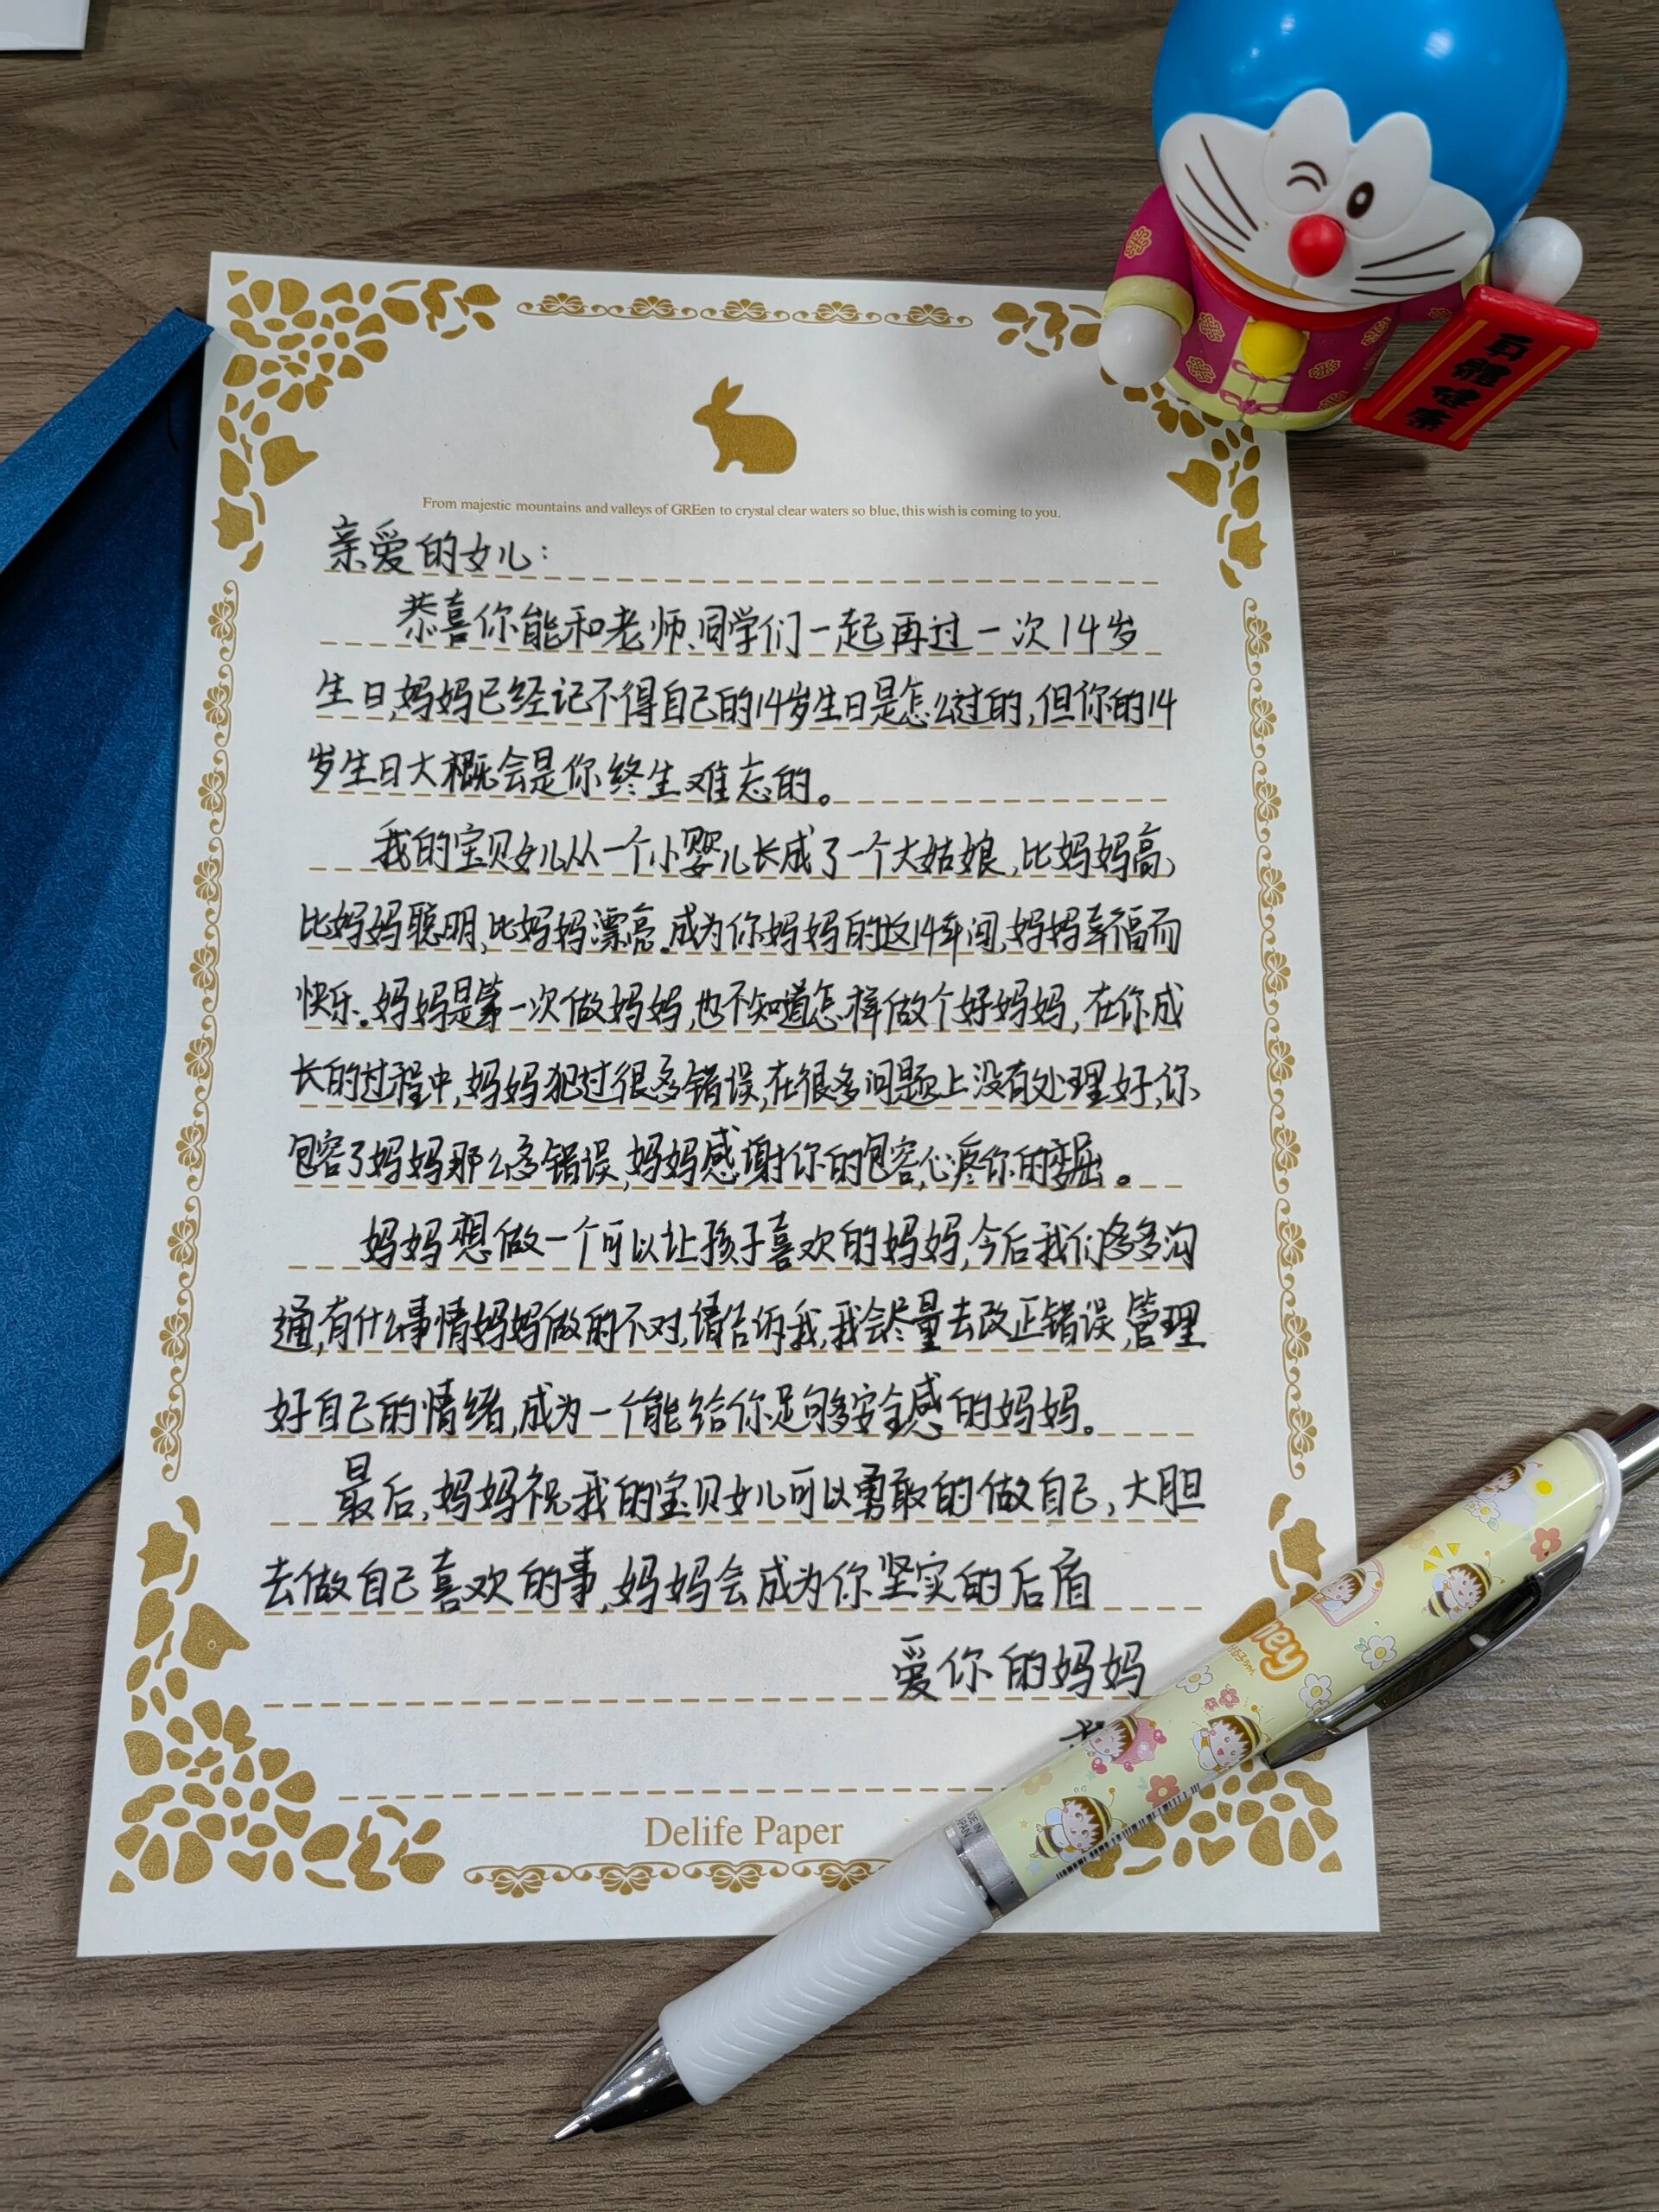 身體健康
From majestic mountains and valleys of GREen to crystal clear waters so blue, this wish is coming to you.
亲爱的女儿：
恭喜你能和老师、同学们一起再过一次14岁
生日，妈妈已经记不得自己的14岁生日是怎么过的，但你的14
岁生日大概会是你终生难忘的。
我的宝贝女儿从一个小婴儿长成了一个大姑娘，比妈妈高，
比妈妈聪明，比妈妈漂亮。成为你妈妈的这14年间，妈妈幸福而
快乐。妈妈是第一次做妈妈，也不知道怎样做个好妈妈，在你成
长的过程中，妈妈犯过很多错误，在很多问题上没有处理好，你
包容了妈妈那么多错误，妈妈感谢你的包容，心疼你的委屈。
妈妈想做一个可以让孩子喜欢的妈妈，今后我们多多沟
通，有什么事情妈妈做的不对，请告诉我，我会尽量去改正错误，管理
好自己的情绪，成为一个能给你足够安全感的妈妈。
最后，妈妈祝我的宝贝女儿可以勇敢的做自己，大胆
去做自己喜欢的事，妈妈会成为你坚实的后盾
爱你的妈妈
Delife Paper
MADE IN JAPAN